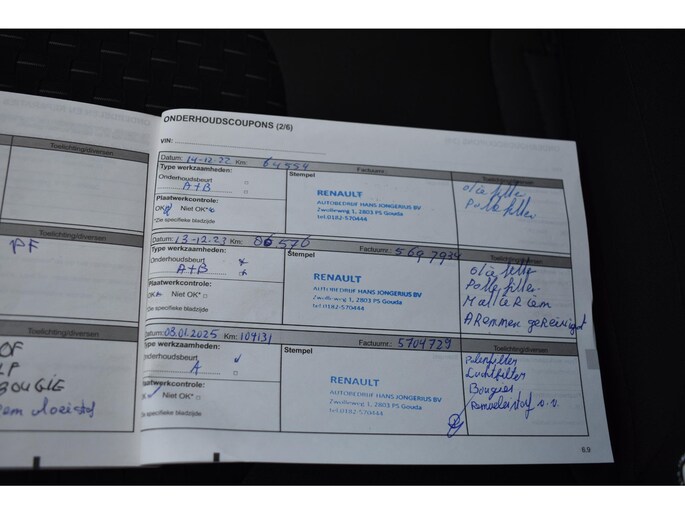 Toelichting/diversen
PF
Toelichting/diversen
BOUGIE
ONDERHOUDSCOUPONS (2/6)
VIN:
Datum: 14-12-22 Km: 64554 Factuurnr.: Toelichting/diversen
Type werkzaamheden:
Stempel
Onderhoudsbeurt
A+B
Plaatwerkcontrole:
OK Niet OK*
*Zie specifieke bladzijde
RENAULT
AUTOBEDRIJF HANS JONGERIUS BV
Zwolleweg 1, 2803 PS Gouda
tel.0182-570444
olie filter
Polle filter
Datum: 13-12-23 Km: 06576 Factuurnr.: 5697934 Toelichting/diversen
Type werkzaamheden:
Stempel
Onderhoudsbeurt
A+B
Plaatwerkcontrole:
OK Niet OK*
*Zie specifieke bladzijde
RENAULT
AUTOBEDRIJF HANS JONGERIUS BV
Zwolleweg 1, 2803 PS Gouda
tel.0182-570444
olie filter
Polle filter
Multi Riem
ARemmen geReinigt
Datum: 08.01.2025 Km: 104131 Factuurnr.: 5704729 Toelichting/diversen
Type werkzaamheden:
Stempel
Onderhoudsbeurt
A
Plaatwerkcontrole:
OK Niet OK*
*Zie specifieke bladzijde
RENAULT
AUTOBEDRIJF HANS JONGERIUS BV
Zwolleweg 1, 2803 PS Gouda
tel.0182-570444
Polenfilter
Luchtfilter
Bougies
6.9